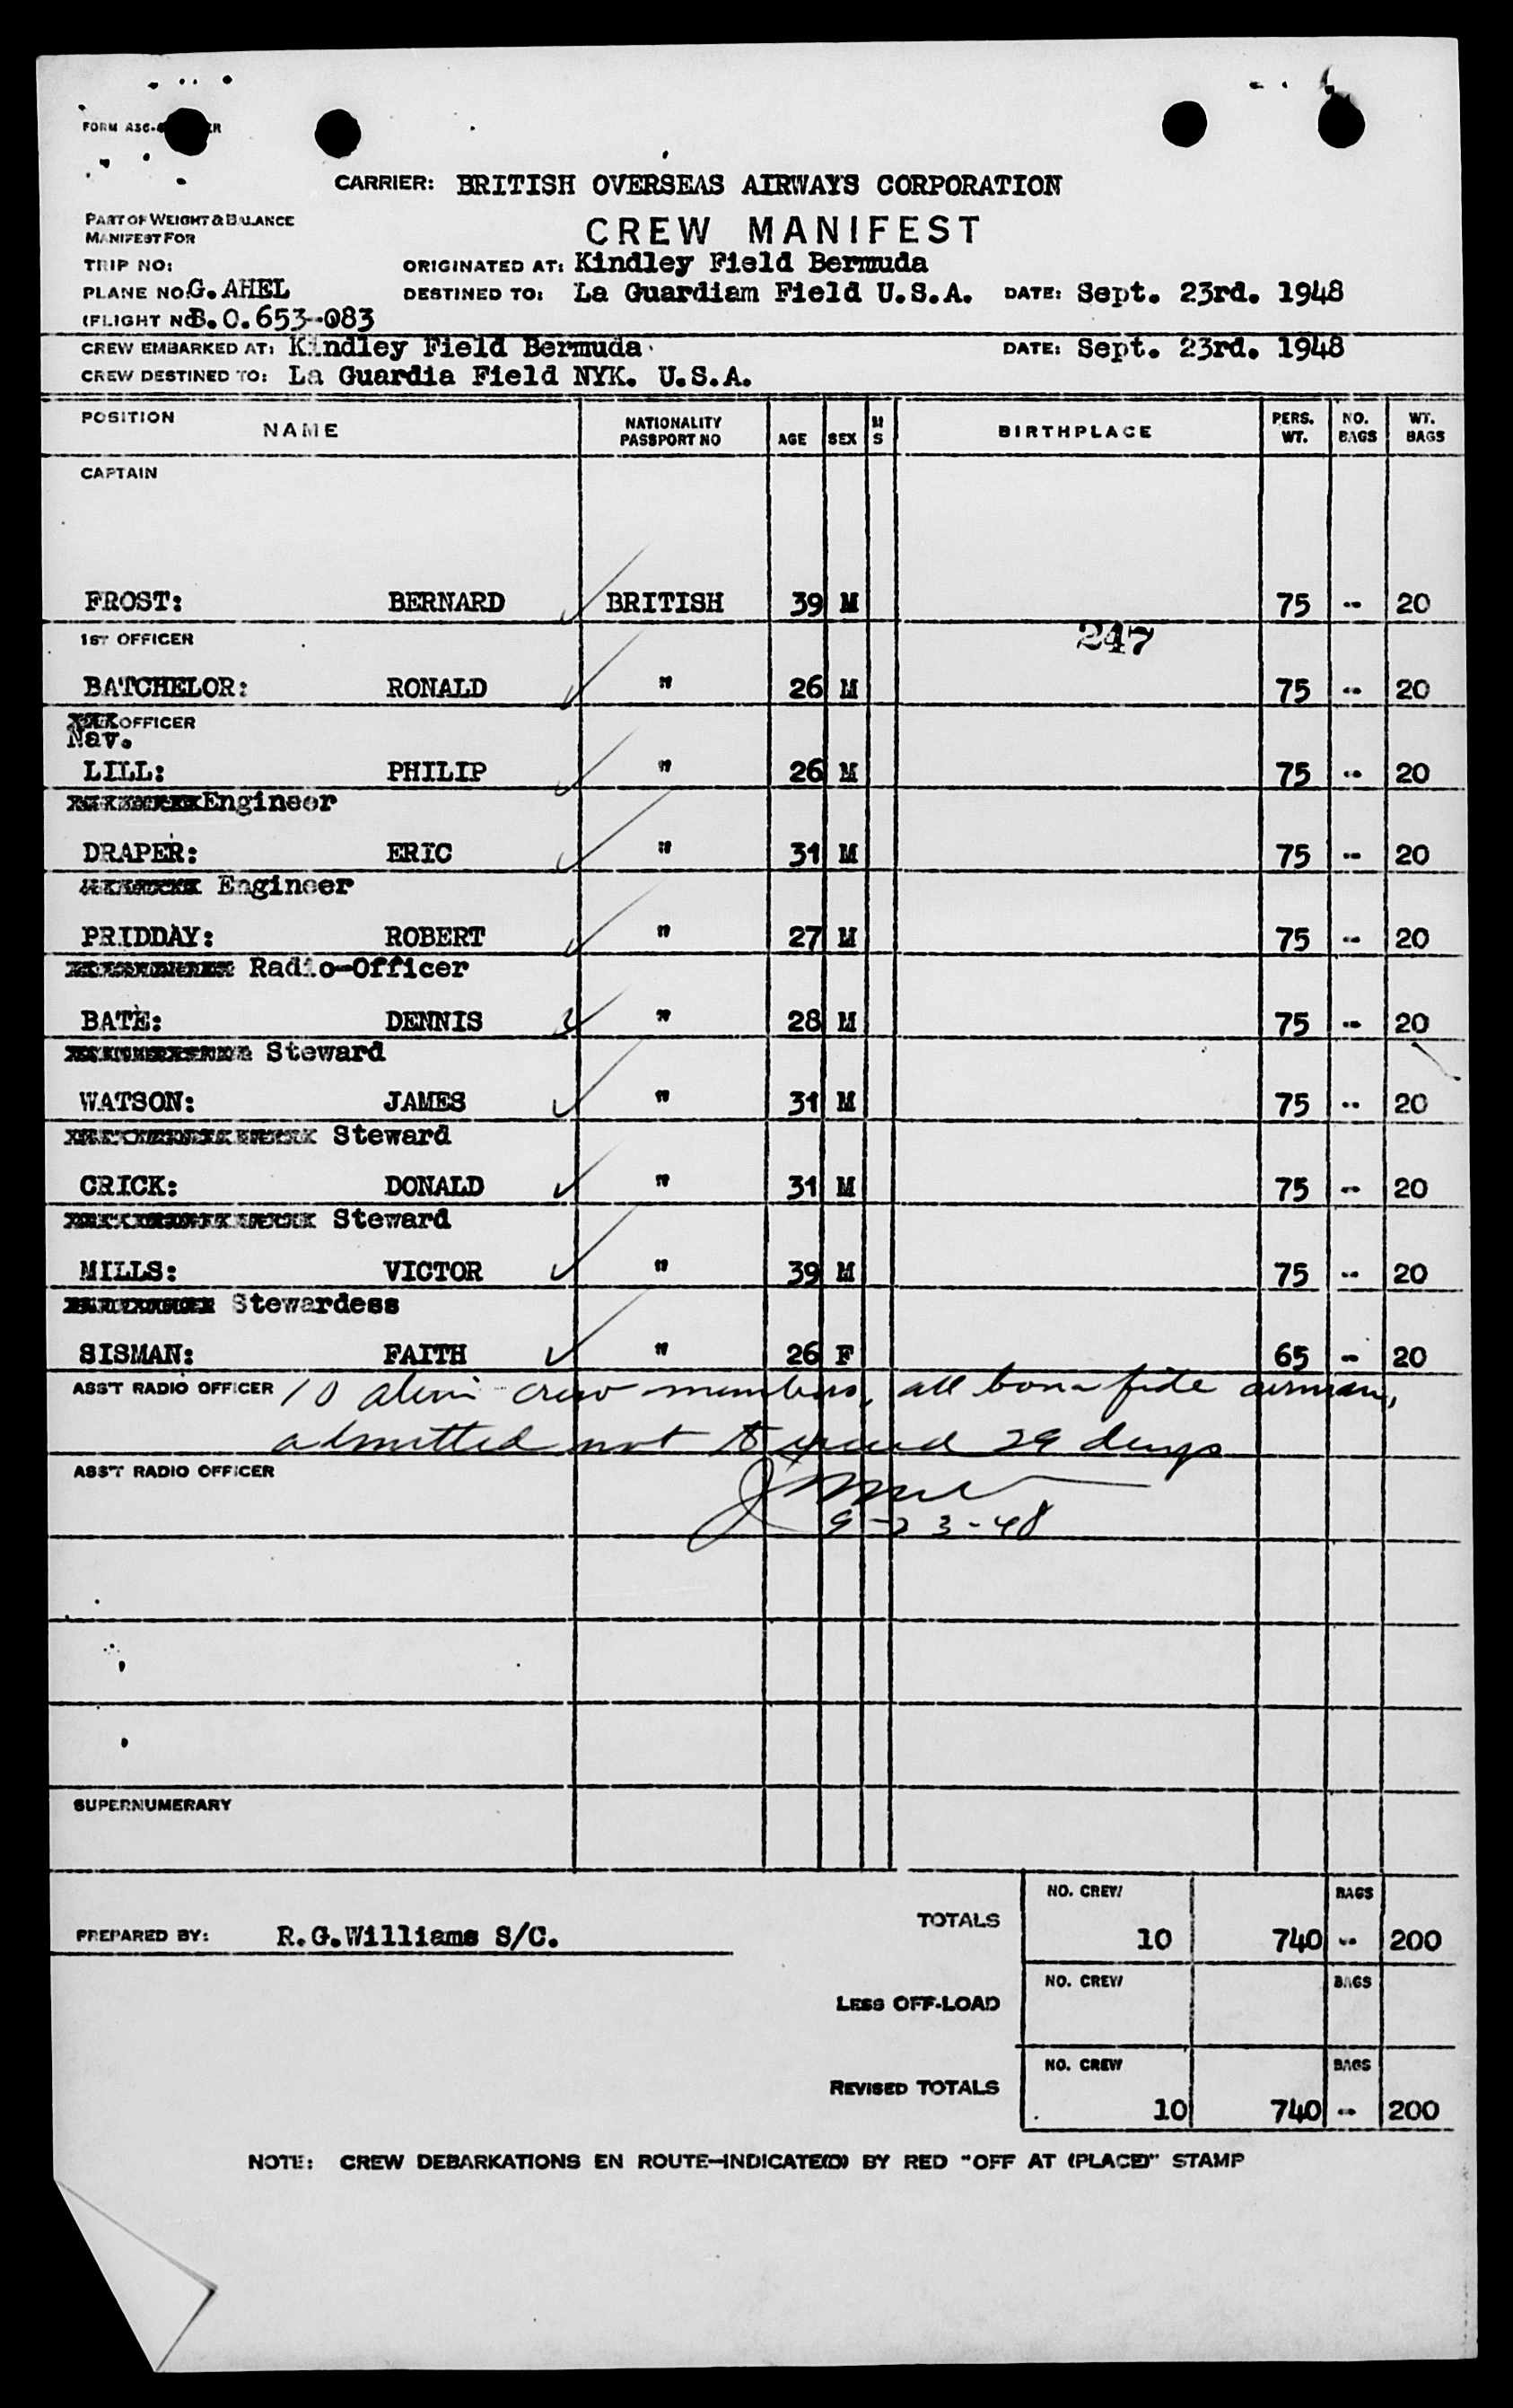 FORM ASC-
CARRIER: BRITISH OVERSEAS AIRWAYS CORPORATION
PART OF WEIGHT & BALANCE
MANIFEST FOR
CREW MANIFEST
TRIP NO:
ORIGINATED AT: Kindley Field Bermuda
PLANE NO: G. AHEL
DESTINED TO: La Guardiam Field U.S.A. DATE: Sept. 23rd. 1948
(FLIGHT NO B.O.653-083
CREW EMBARKED AT: Kindley Field Bermuda DATE: Sept. 23rd. 1948
CREW DESTINED TO: La Guardia Field NYK. U.S.A.
POSITION NAME NATIONALITY PASSPORT NO AGE SEX M S BIRTHPLACE PERS. WT. NO. BAGS WT. BAGS
CAPTAIN
FROST: BERNARD BRITISH 39 M 75 -- 20
1ST OFFICER 247
BATCHELOR: RONALD " 26 M 75 -- 20
OFFICER
Nav.
LILL: PHILIP " 26 M 75 -- 20
Engineer
DRAPER: ERIC " 31 M 75 -- 20
Engineer
PRIDDAY: ROBERT " 27 M 75 -- 20
Radio-Officer
BATE: DENNIS " 28 M 75 -- 20
Steward
WATSON: JAMES " 31 M 75 -- 20
Steward
CRICK: DONALD " 31 M 75 -- 20
Steward
MILLS: VICTOR " 39 M 75 -- 20
Stewardess
SISMAN: FAITH " 26 F 65 -- 20
ASS'T RADIO OFFICER 10 alien crew members, all bona fide airmen,
admitted not to exceed 29 days
ASS'T RADIO OFFICER
9-23-48
SUPERNUMERARY
NO. CREW BAGS
PREPARED BY: R.G.Williams S/C. TOTALS 10 740 -- 200
NO. CREW BAGS
LESS OFF-LOAD
NO. CREW BAGS
REVISED TOTALS 10 740 -- 200
NOTE: CREW DEBARKATIONS EN ROUTE—INDICATE(D) BY RED "OFF AT (PLACE)" STAMP